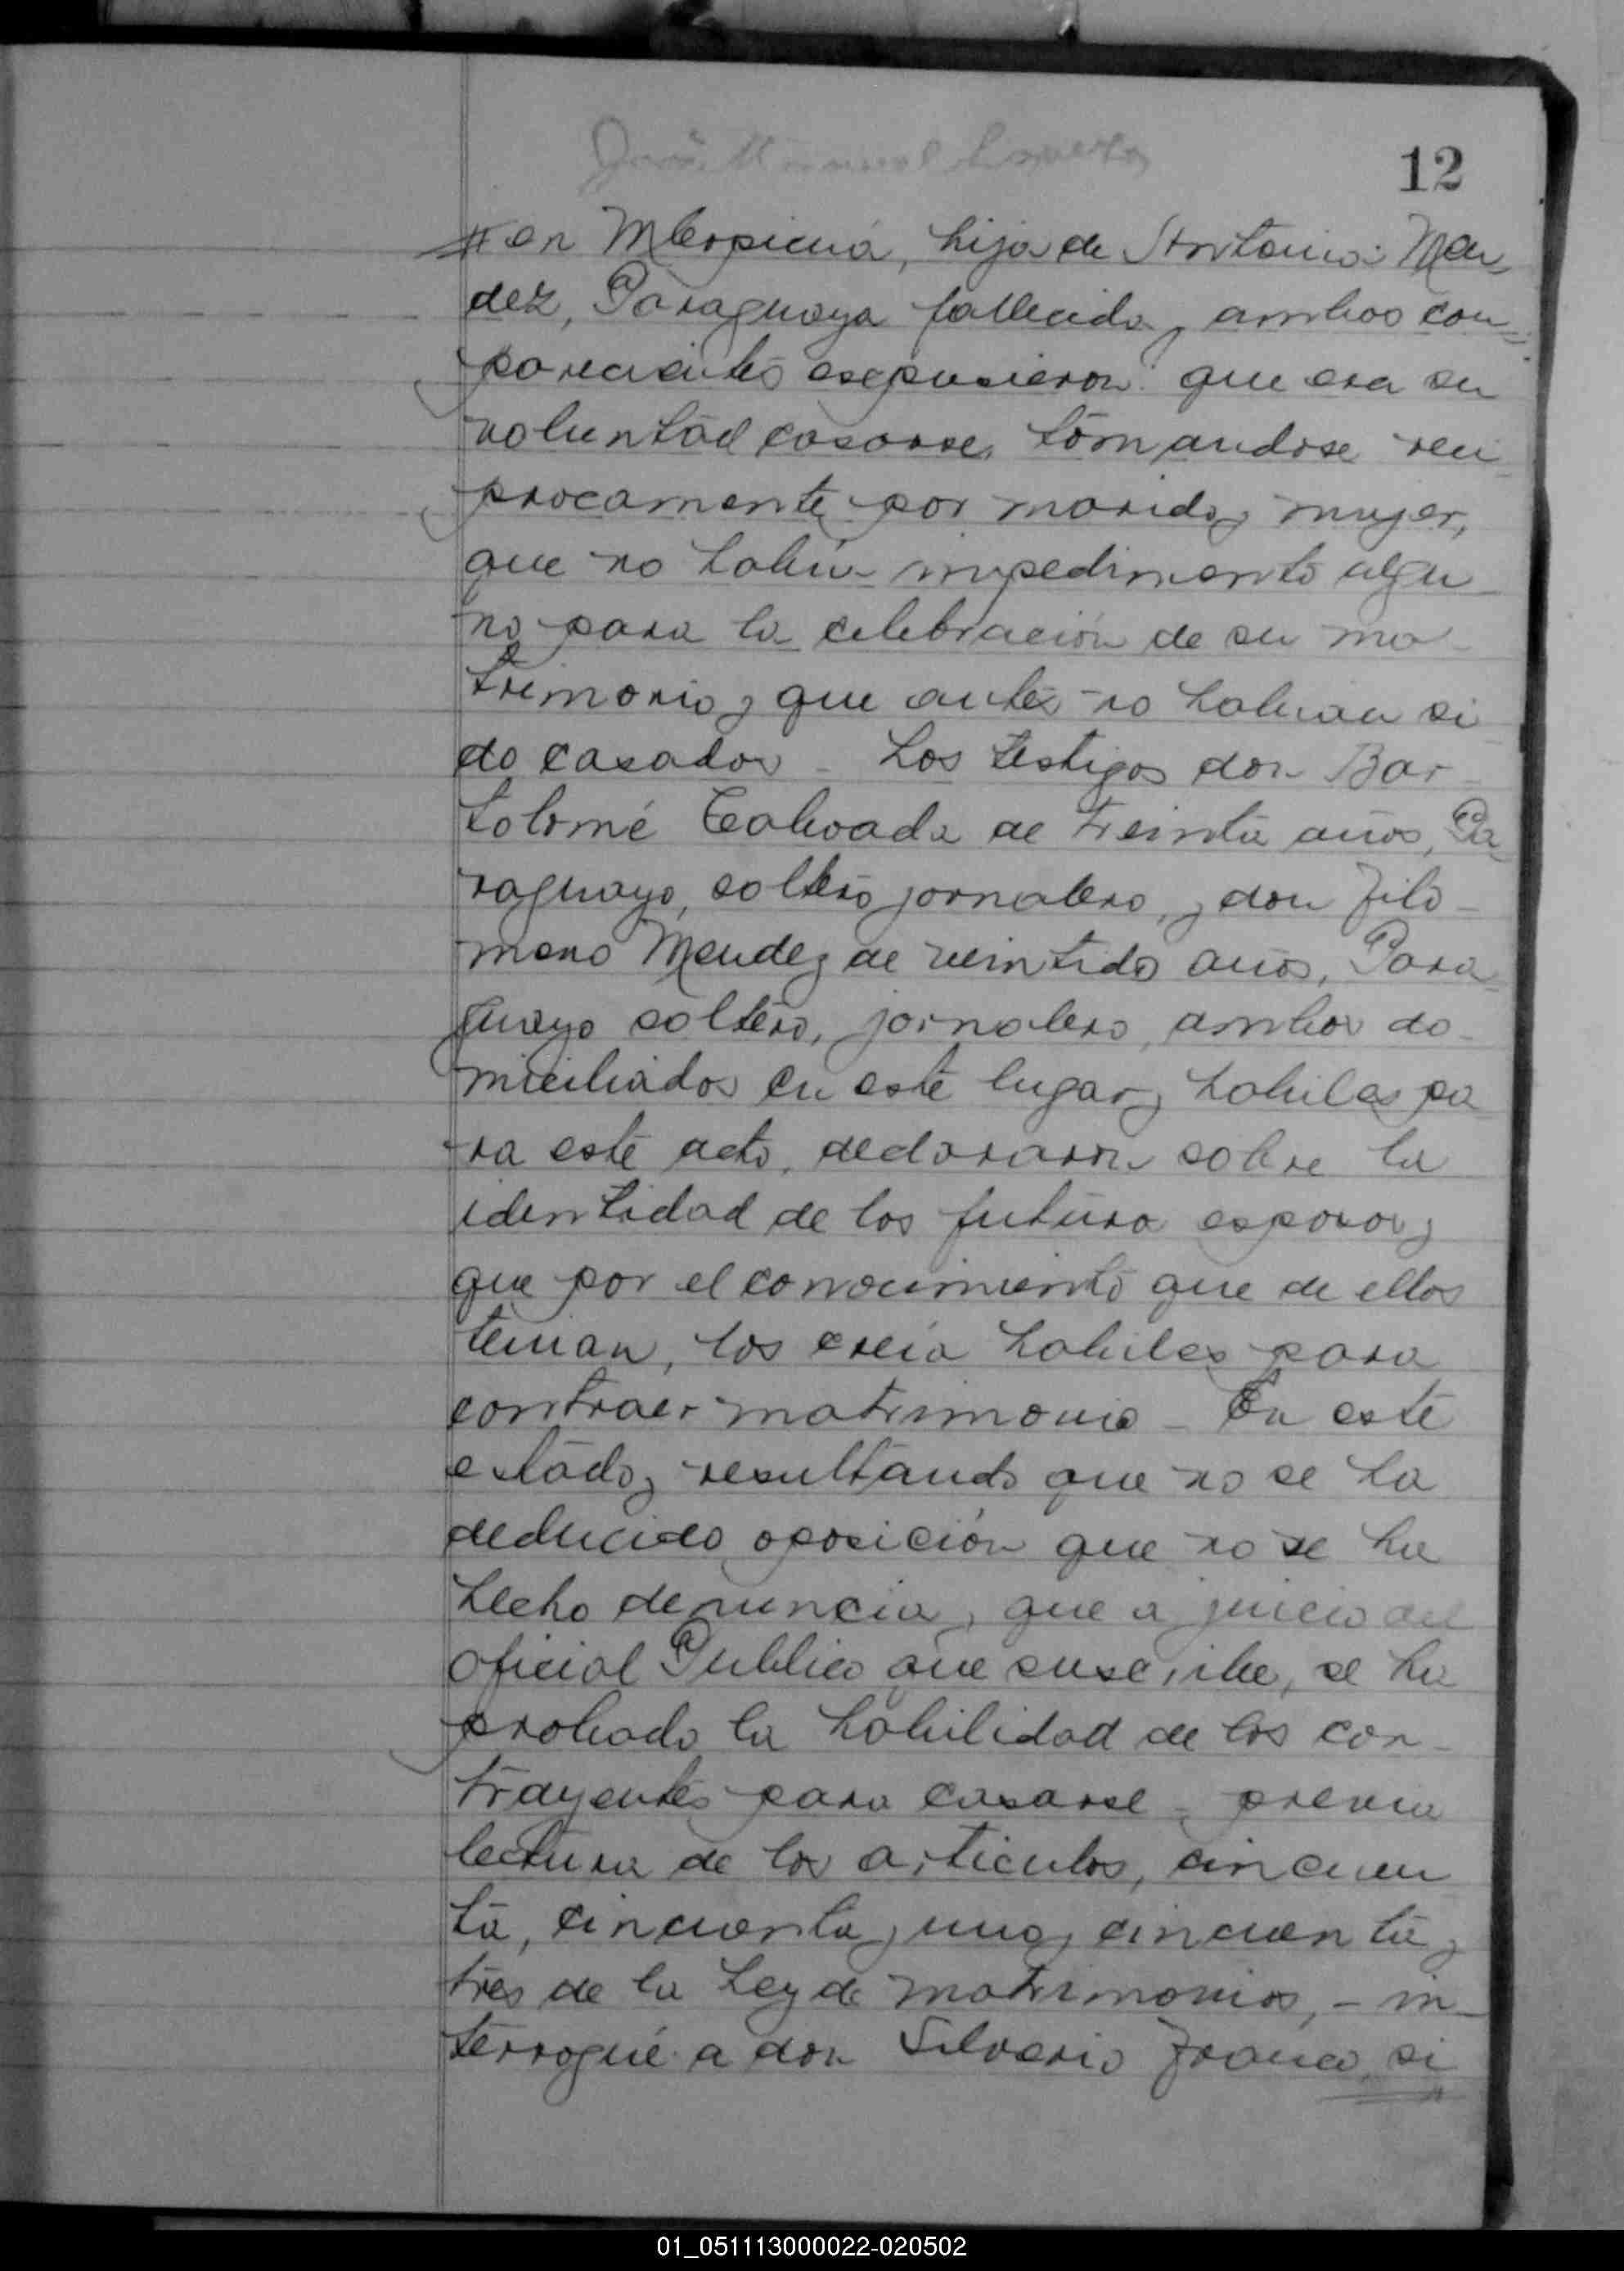 12
en Mbopicuá, hija de Antonia Men
dez, Paraguaya fallecida, ambos com
parecientes expusieron: que era su
voluntad casarse, tomandose reci
procamente por marido y mujer,
que no había impedimento algu
no para la celebración de su ma
trimonio y que antes no habian si
do casados - Los testigos don Bar
tolomé Taboada de treinta años, Pa
raguayo, soltero jornalero, y don Filo
meno Mendez de veintido años, Para
guayo soltero, jornalero, ambos do
miciliados en este lugar y habiles pa
ra este acto, declararon sobre la
identidad de los futuro esposos y
que por el conocimiento que de ellos
tenian, los creia habiles para
contraer matrimonio - En este
estado y resultando que no se ha
deducido oposición que no se ha
hecho denuncia, que a juicio del
Oficial Publico que suscribe, se ha
probado la habilidad de los con
trayentes para casarse - previa
lectura de los articulos, cincuen
ta, cincuenta y uno y cincuenta y
tres de la Ley de matrimonios, - in
terrogué a don Silverio Franco, si
01_051113000022-020502